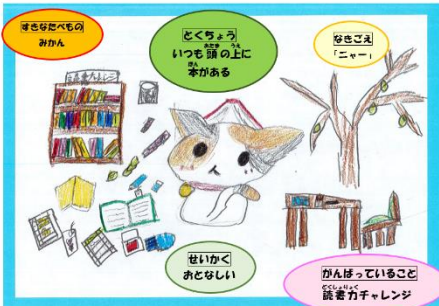 すきなたべもの
みかん
とくちょう
いつも頭の上に
本がある
なきごえ
「ニャー」
せいかく
おとなしい
がんばっていること
読書力チャレンジ